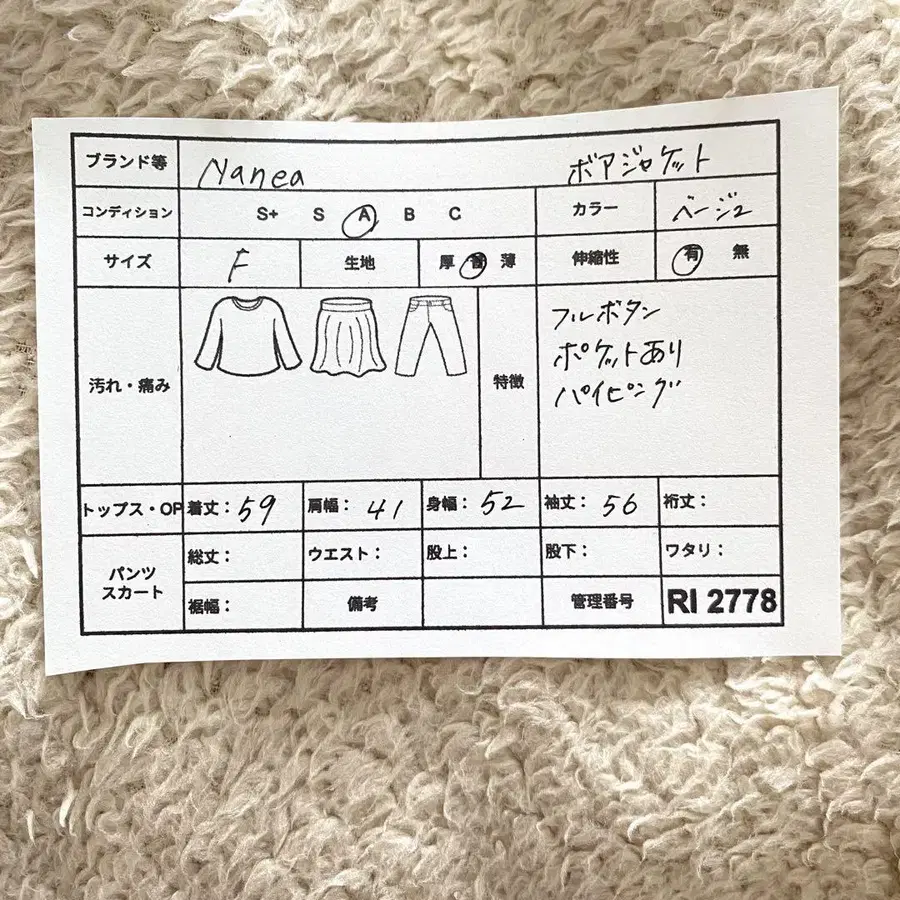 ブランド等 Nanea ボアジャケット
コンディション S+ S A B C カラー ベージュ
サイズ F 生地 厚 普 薄 伸縮性 有 無
汚れ・痛み 特徴
フルボタン
ポケットあり
パイピング
トップス・OP 着丈：59 肩幅：41 身幅：52 袖丈：56 裄丈：
パンツ
スカート
総丈： ウエスト： 股上： 股下： ワタリ：
裾幅： 備考 管理番号 RI 2778